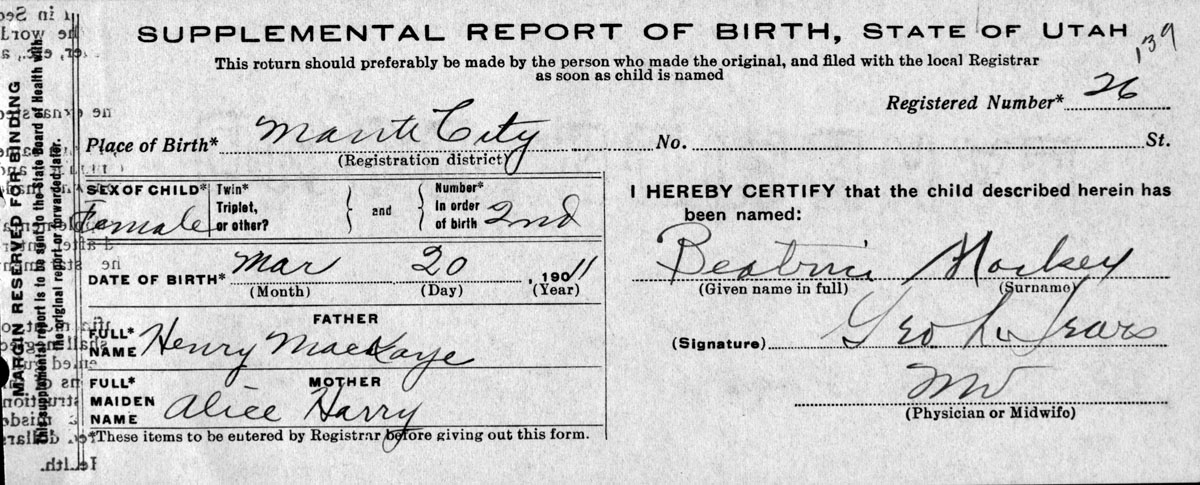 SUPPLEMENTAL REPORT OF BIRTH, STATE OF UTAH
139
This return should preferably be made by the person who made the original, and filed with the local Registrar
as soon as child is named
Registered Number* 26
Place of Birth* Manti City No. St.
(Registration district)
SEX OF CHILD* Female
Twin* Triplet, or other? } and { Number* In order of birth 2nd
DATE OF BIRTH* Mar 20, 1911
(Month) (Day) (Year)
FATHER
FULL* NAME Henry MacKaye
MOTHER
FULL* MAIDEN NAME Alice Harry
*These items to be entered by Registrar before giving out this form.
I HEREBY CERTIFY that the child described herein has
been named:
Beatrice Mackey
(Given name in full) (Surname)
(Signature) Geo L Sears
MD
(Physician or Midwife)
MARGIN RESERVED FOR BINDING
This supplemental report is to be sent to the State Board of Health with
the original report or forwarded later.